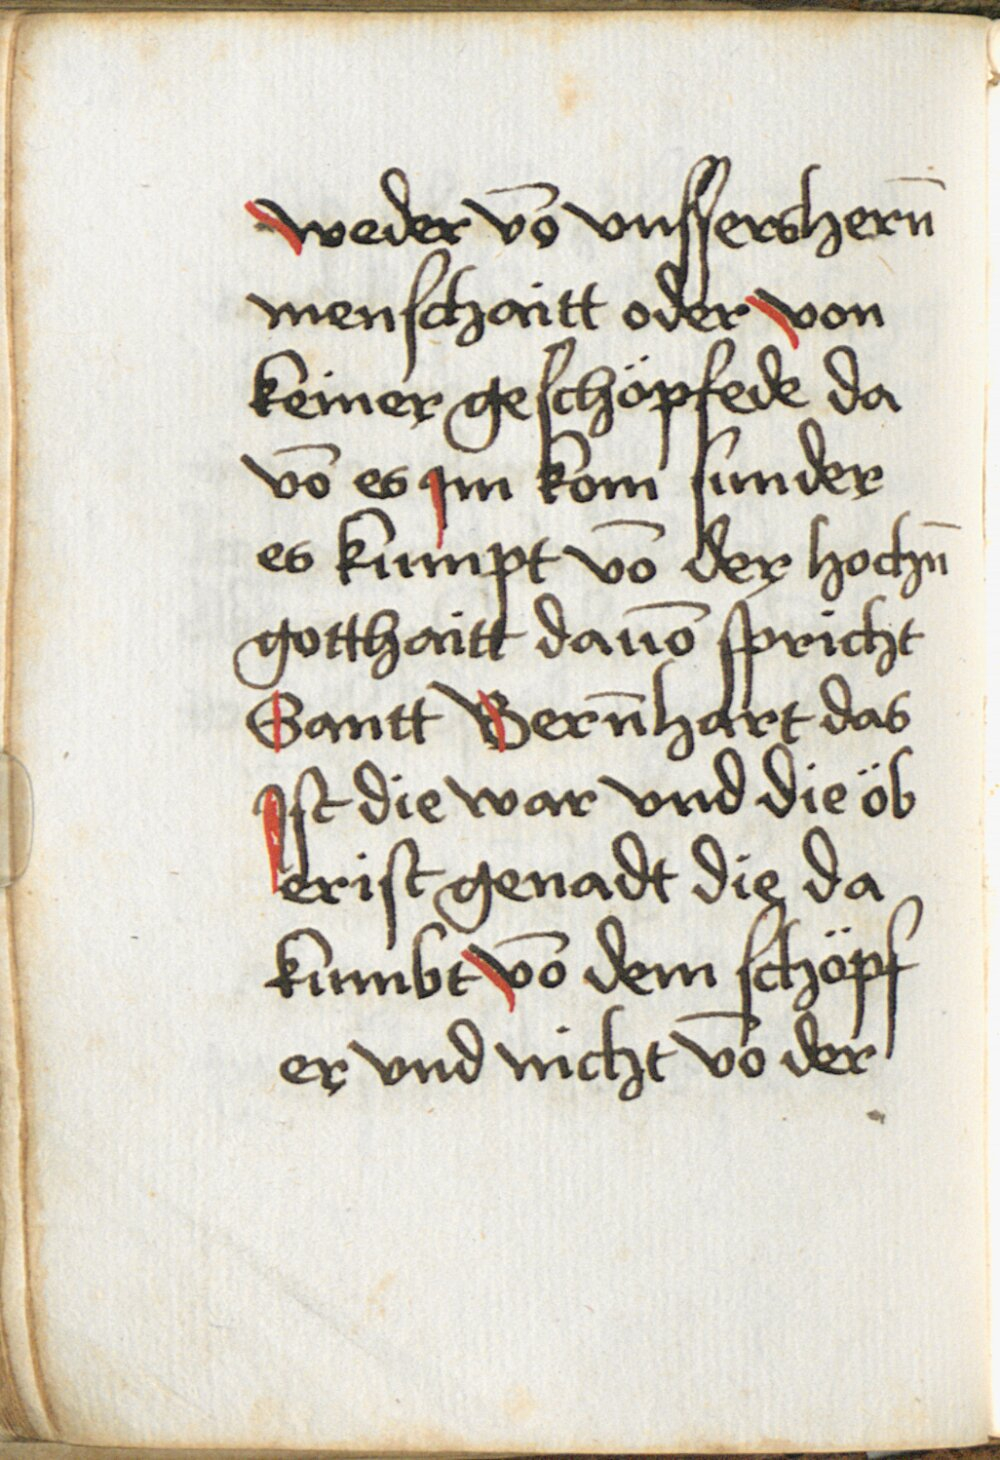 weder vō vnſſershern̄
menſchaitt oder von
keiner geſchöpfede da
vō es Im kom ſunder
es kumpt vō der hochn̄
gotthaitt dauō ſpricht
Santt Bern̄hart das
Iſt die war vnd die öb
eriſt genadt die da
kumbt vō dem ſchöpf
er vnd nicht vō der